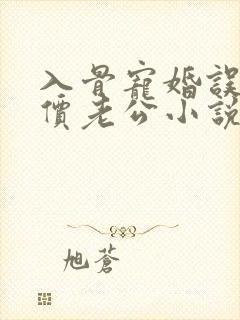 入骨寵婚誤
價老公小説
旭蒼